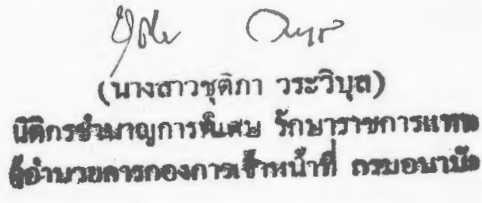 (นางสาวชุติภา วระวิบุล)
นิติกรชำนาญการพิเศษ รักษาราชการแทน
ผู้อำนวยการกองการเจ้าหน้าที่ กรมอนามัย